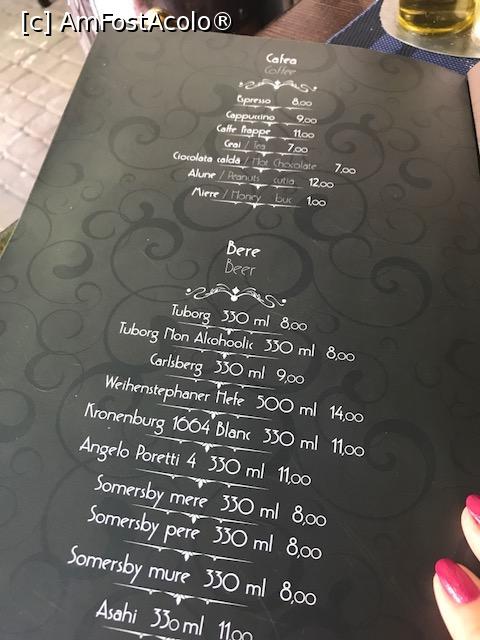 [c] AmFostAcolo®
Cafea
Coffee
Espresso 8,00
Cappuccino 9,00
Caffe frappe 11,00
Ceai / Tea 7,00
Ciocolata caldă / Hot Chocolate 7,00
Alune / Peanuts cutia 12,00
Miere / Honey buc 1,00
Bere
Beer
Tuborg 330 ml 8,00
Tuborg Non Alcohoolic 330 ml 8,00
Carlsberg 330 ml 9,00
Weihenstephaner Hefe 500 ml 14,00
Kronenburg 1664 Blanc 330 ml 11,00
Angelo Poretti 4 330 ml 11,00
Somersby mere 330 ml 8,00
Somersby pere 330 ml 8,00
Somersby mure 330 ml 8,00
Asahi 330 ml 11,00